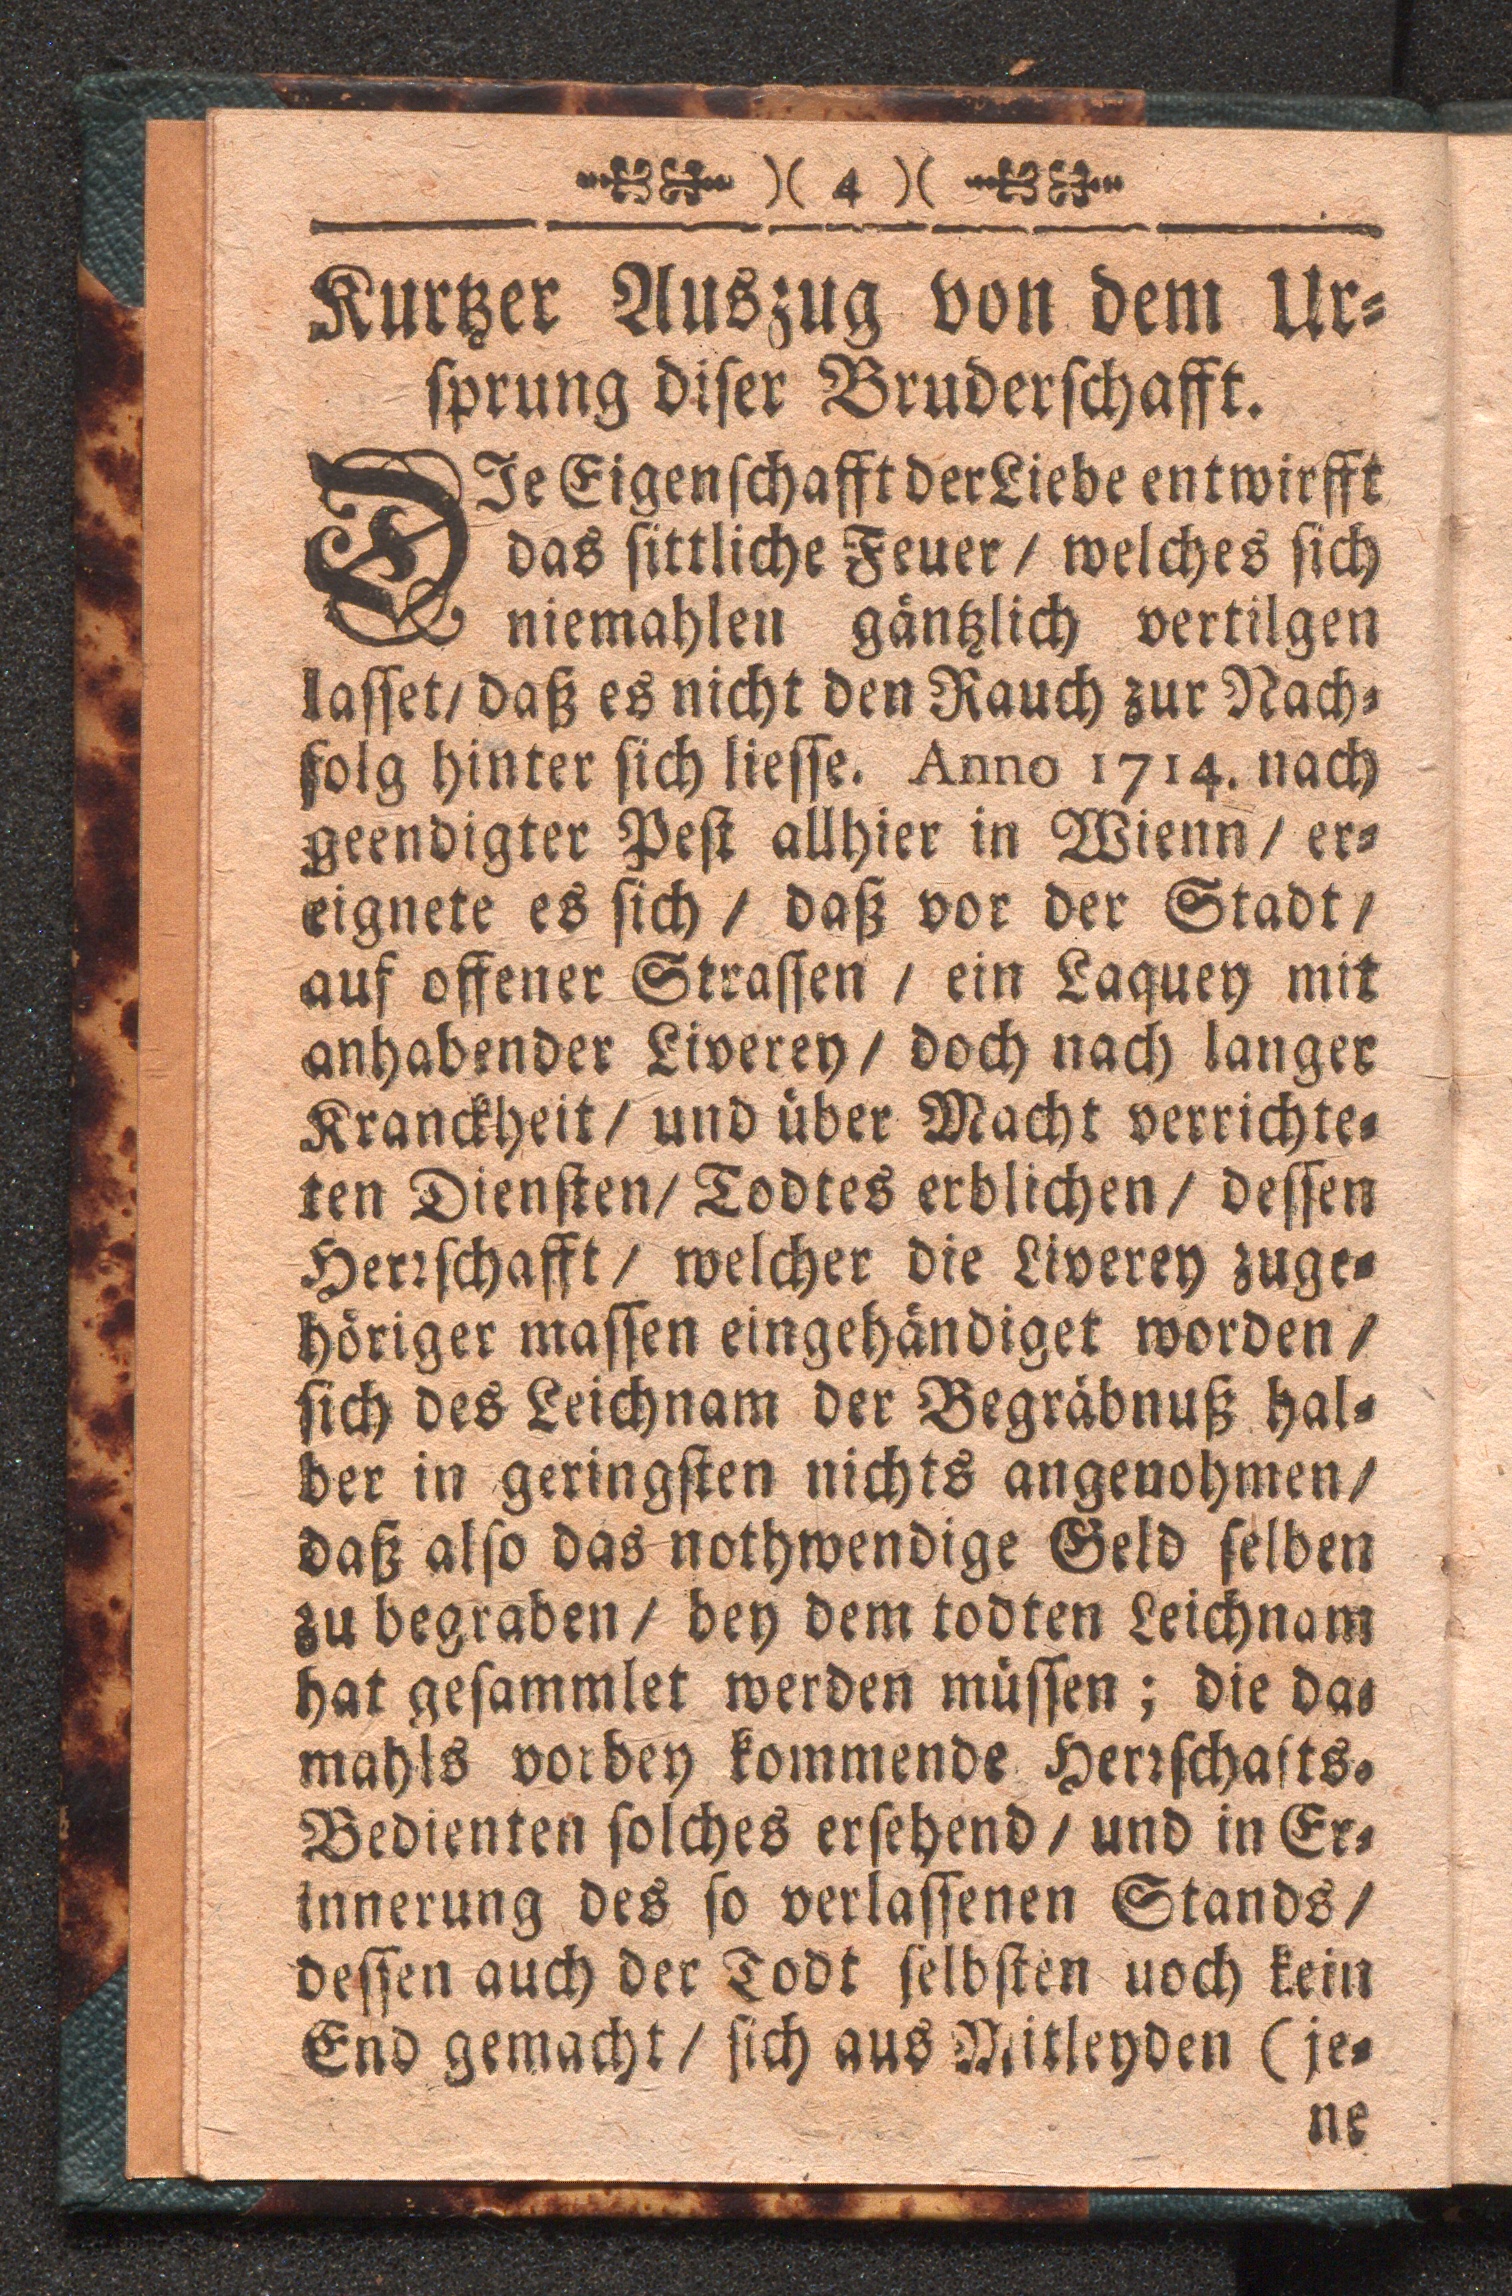 )( 4 )(
Kurtzer Auszug von dem Ur⸗
ſprung diſer Bruderſchafft.
DIe Eigenſchafft der Liebe entwirfft
das ſittliche Feuer / welches ſich
niemahlen gäntzlich vertilgen
laſſet / daß es nicht den Rauch zur Nach⸗
folg hinter ſich lieſſe. Anno 1714. nach
geendigter Peſt allhier in Wienn / er⸗
eignete es ſich / daß vor der Stadt /
auf offener Straſſen / ein Laquey mit
anhabender Liverey / doch nach langer
Kranckheit / und über Macht verrichte⸗
ten Dienſten / Todtes erblichen / deſſen
Herꝛſchafft / welcher die Liverey zuge⸗
höriger maſſen eingehändiget worden /
ſich des Leichnam der Begräbnuß hal⸗
ber in geringſten nichts angenohmen /
daß alſo das nothwendige Geld ſelben
zu begraben / bey dem todten Leichnam
hat geſammlet werden müſſen ; die da⸗
mahls vorbey kommende Herꝛſchafts⸗
Bedienten ſolches erſehend / und in Er⸗
innerung des ſo verlaſſenen Stands /
deſſen auch der Todt ſelbſten uoch kein
End gemacht / ſich aus Mitleyden ( je⸗
ne